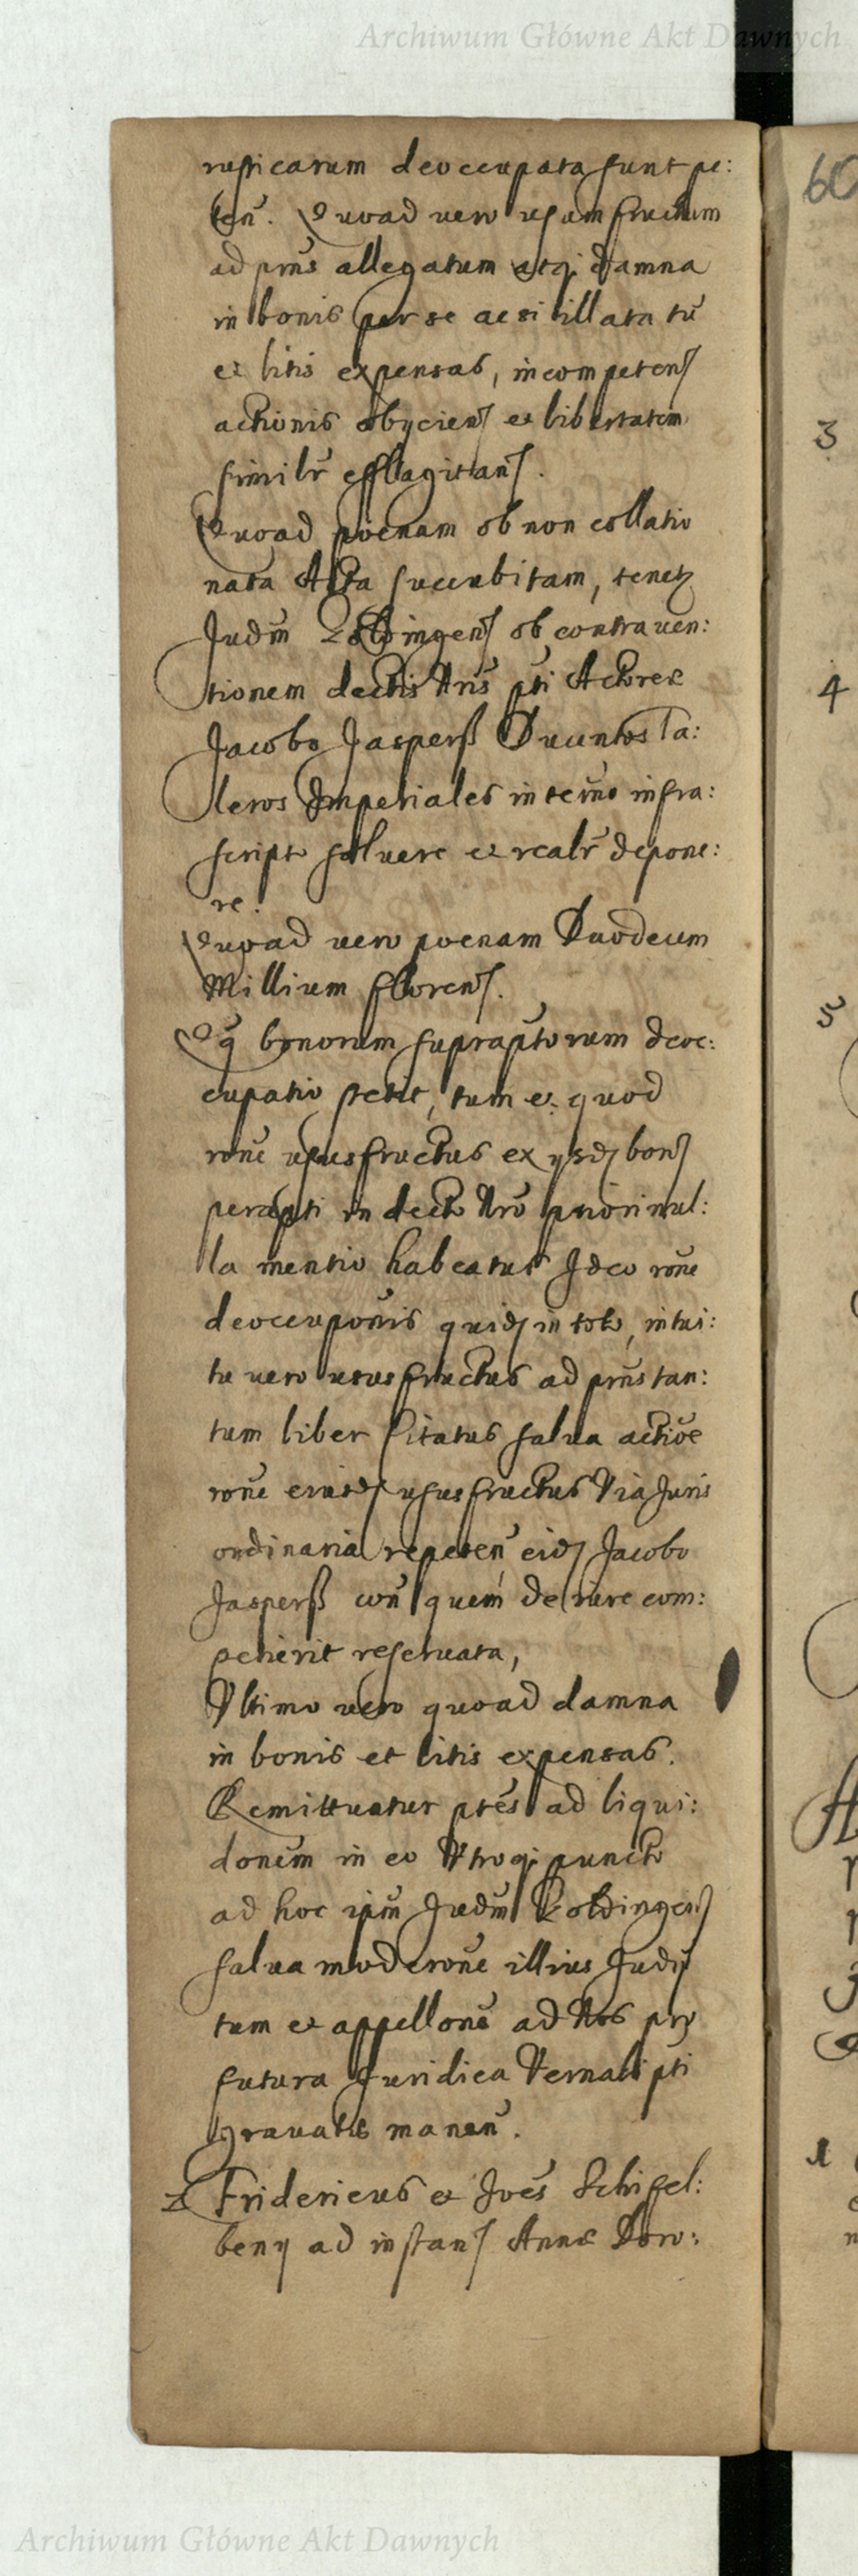 Archiwum Główne Akt Dawnych
rusticarum deoccupata sunt pe:
ten̄. Quoad vero usumfructum
ad prn̄s allegatum atq; damna
in bonis per se ac si illata tū
et litis expensas, incompeten̄
actionis obycien̄ et libertatem
similr̄ efflagitan̄.
Quoad poenam ob non collatio
nata Acta succubitam, tenetz
Judm̄ Goldingen̄ ob contraven:
tionem dectis Nr̄is pti Actorer
Jacobo Jasperß Ducentos Ta:
leros Imperiales in termō infra:
scripto solvere et realr̄ depone:
re.
Quoad vero poenam Duodecim
Millium Floren̄.
Qq̄ bonorum supraptorum deoc:
cupatio stetit, tum et quod
rōne ususfructus ex ysdem bon̄
percepti in decto Nr̄o priori nul:
la mentio habeatur Ideo rōne
deoccupōnis quid; in toto, intui:
tu vero ususfructus ad prn̄s tan:
tum liber citatus salva actiōe
rōne eiusd; ususfructus Via Juris
ordinaria repeten̄ eid; Jacobo
Jasperß con̄ quem de iure com:
petierit reservata,
Ultimo vero quoad damna
in bonis et litis expensas.
Remittuntur ptēs ad liqui:
donem in eo Utroq; puncto
ad hoc ipm̄ Judm̄ Goldingen̄
salva moderōne illius Judij
tum et appellōne ad Nos pro
futura Juridica Vernali pti
gravatis manen̄.
2 Fridericus et Joēs Schipel:
beny ad instan̄ Annæ Doro:
60
3
4
5
1
Archiwum Główne Akt Dawnych